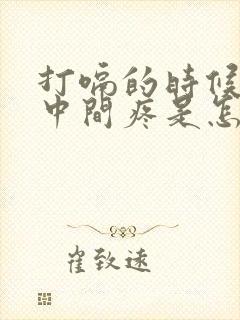 打嗝的時候
中間疼是怎
崔致遠